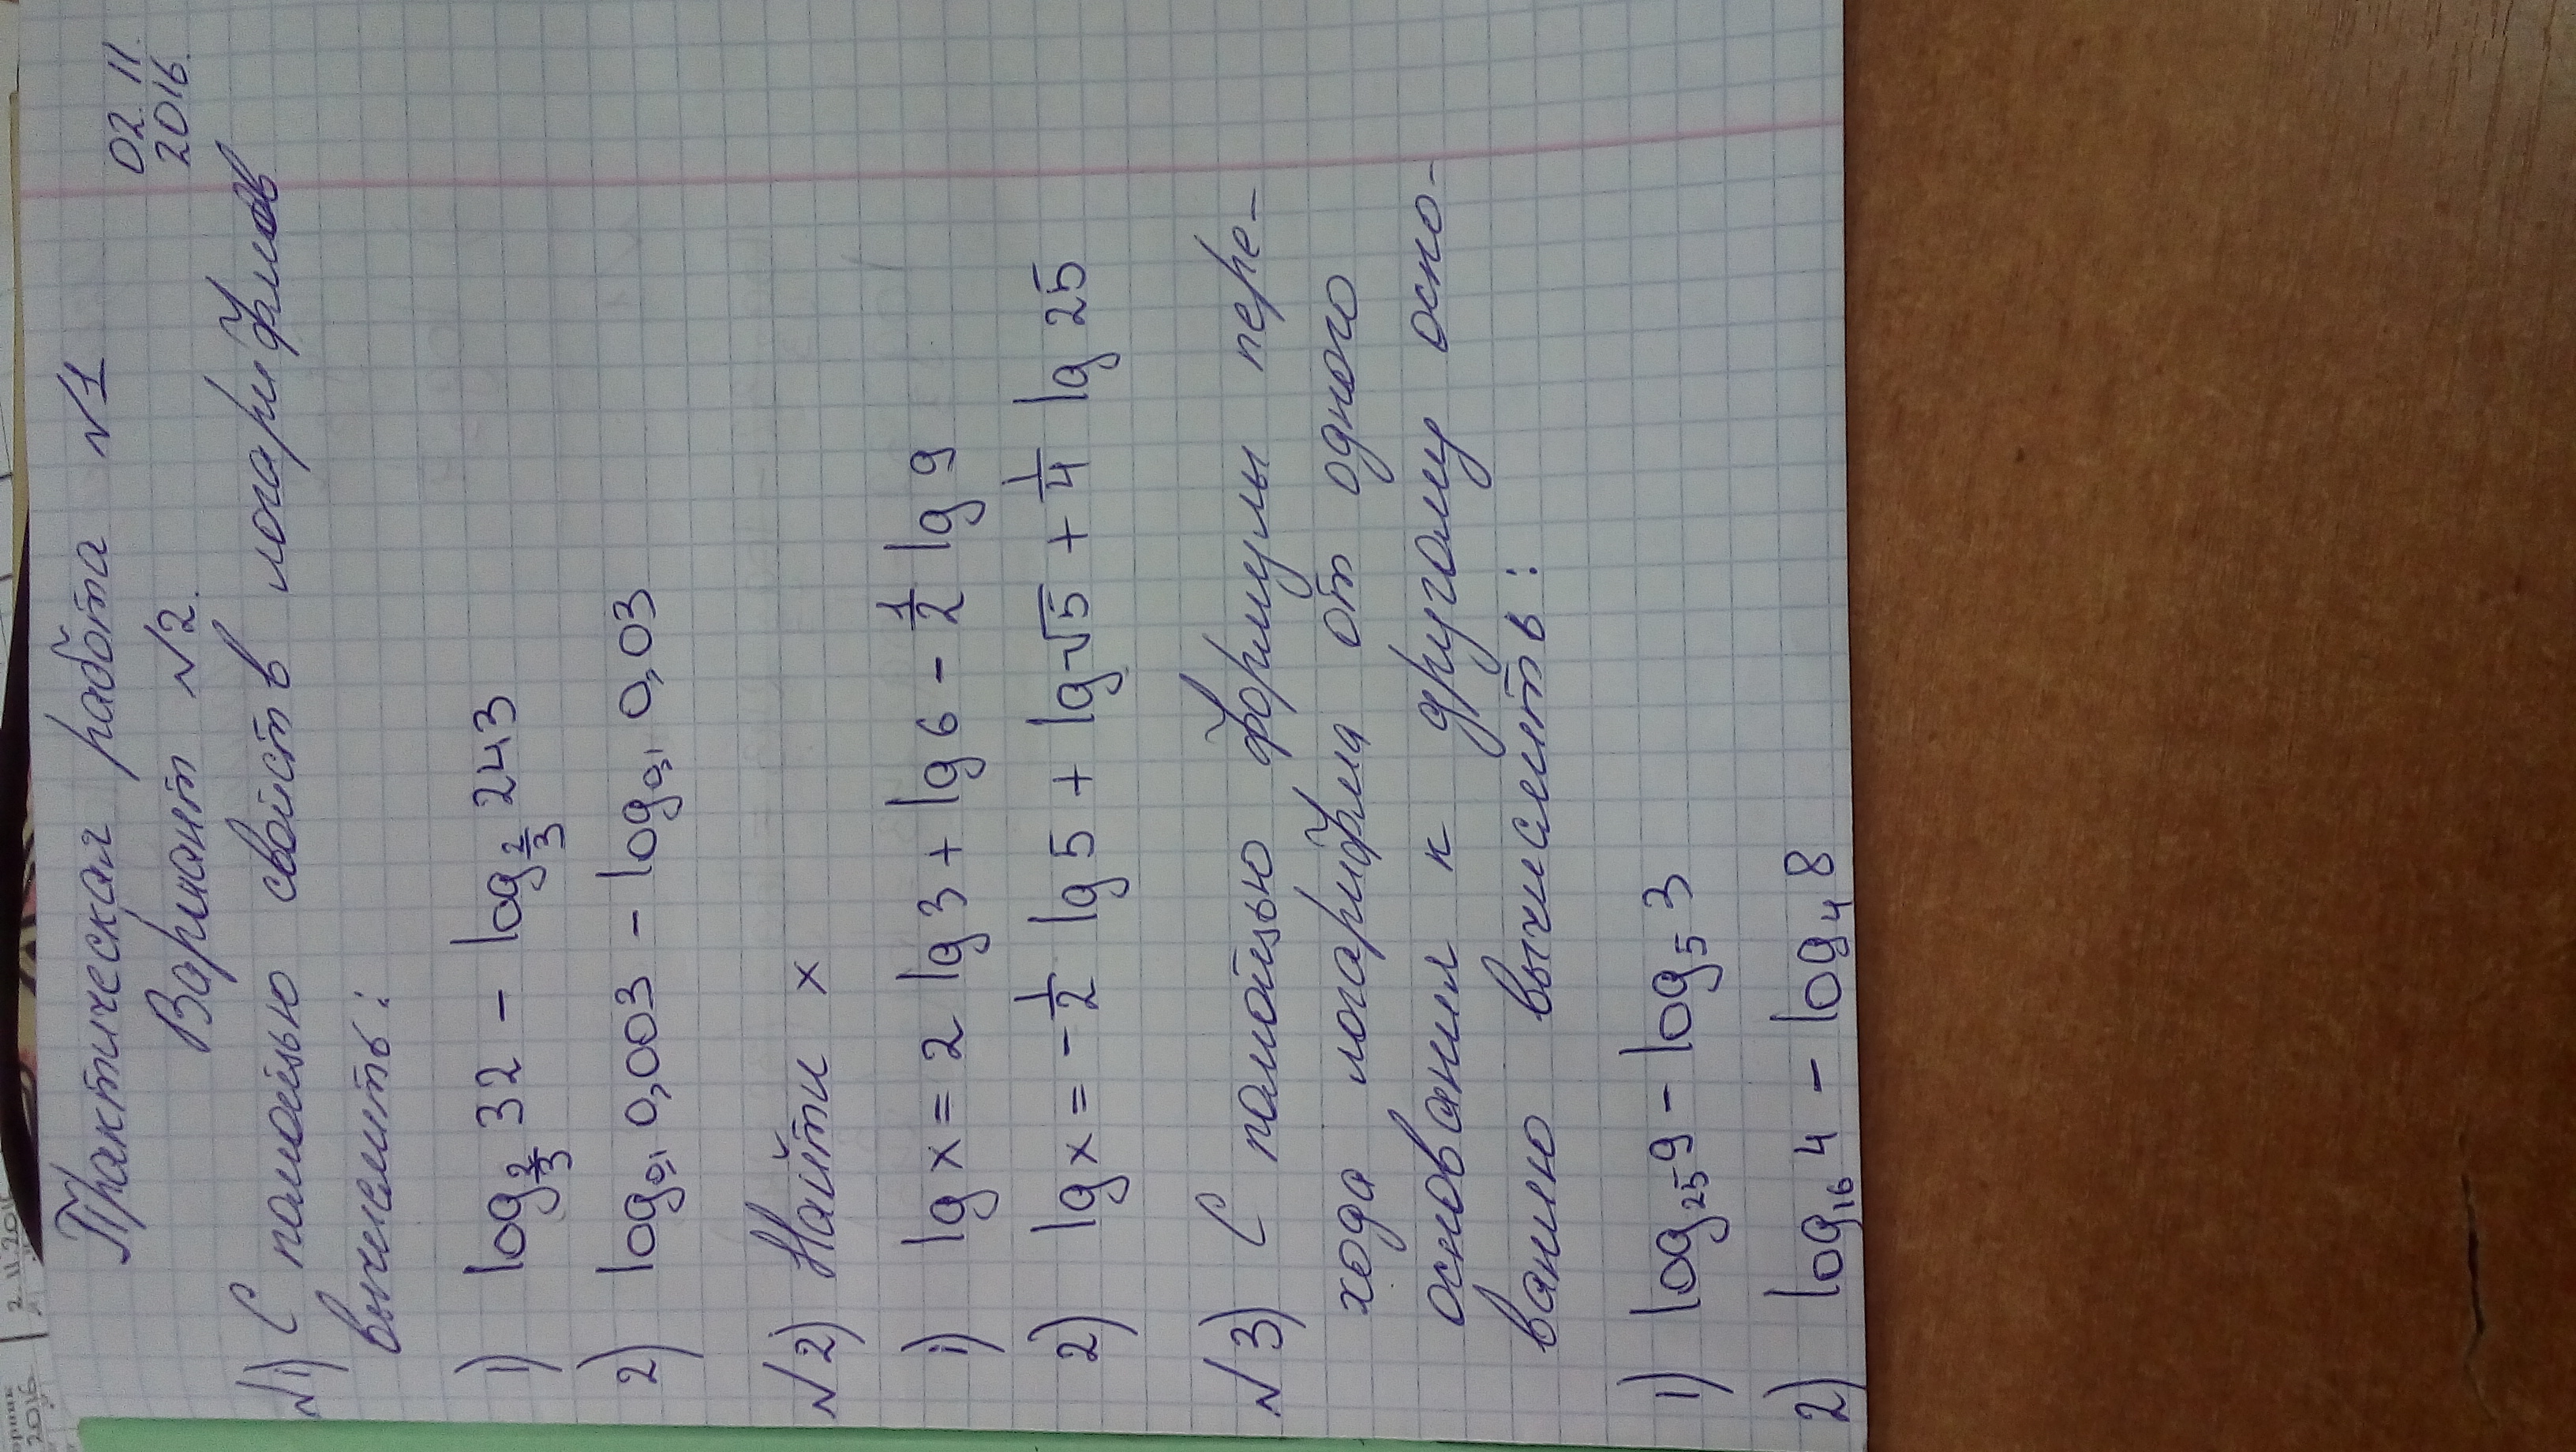 02.11.
2016.
Практическая работа №1
Вариант №2.
№1) С помощью свойств логарифмов
вычислить:
1) log_{2/3} 32 - log_{2/3} 243
2) log_{0,1} 0,003 - log_{0,1} 0,03
№2) Найти x
1) lg x = 2 lg 3 + lg 6 - 1/2 lg 9
2) lg x = - 1/2 lg 5 + lg √5 + 1/4 lg 25
№3) С помощью формулы пере-
хода логарифма от одного
основания к другому осно-
ванию вычислить:
1) log_{25} 9 - log_5 3
2) log_{16} 4 - log_4 8